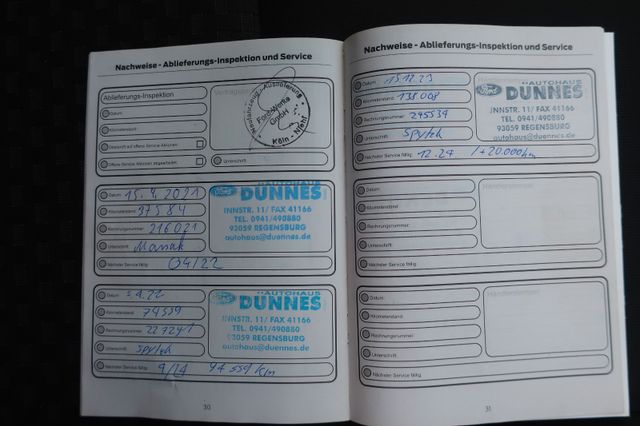 Nachweise - Ablieferungs-Inspektion und Service
Ablieferungs-Inspektion
Datum
Kilometerstand
Überprüft auf offene Service Aktionen
Offene Service Aktionen abgearbeitet
Unterschrift
Neufahrzeug-Auslieferung
Ford-Werke
GmbH
Köln - Niehl
Datum 15.4.2021
Kilometerstand 37584
Rechnungsnummer 216021
Unterschrift
Nächster Service fällig 04/22
Ford AUTOHAUS
DÜNNES
INNSTR. 11/ FAX 41166
TEL. 0941/490880
93059 REGENSBURG
autohaus@duennes.de
Datum
Kilometerstand 74559
Rechnungsnummer 227241
Unterschrift
Nächster Service fällig 94559 km
Ford AUTOHAUS
DÜNNES
INNSTR. 11/ FAX 41166
TEL. 0941/490880
93059 REGENSBURG
autohaus@duennes.de
30
Nachweise - Ablieferungs-Inspektion und Service
Datum 15.12.23
Kilometerstand 138.008
Rechnungsnummer 245534
Unterschrift
Nächster Service fällig 12.24 /+20.000km
Ford AUTOHAUS
DÜNNES
INNSTR. 11/ FAX 41166
TEL. 0941/490880
93059 REGENSBURG
autohaus@duennes.de
Datum
Kilometerstand
Rechnungsnummer
Unterschrift
Nächster Service fällig
Datum
Kilometerstand
Rechnungsnummer
Unterschrift
Nächster Service fällig
31